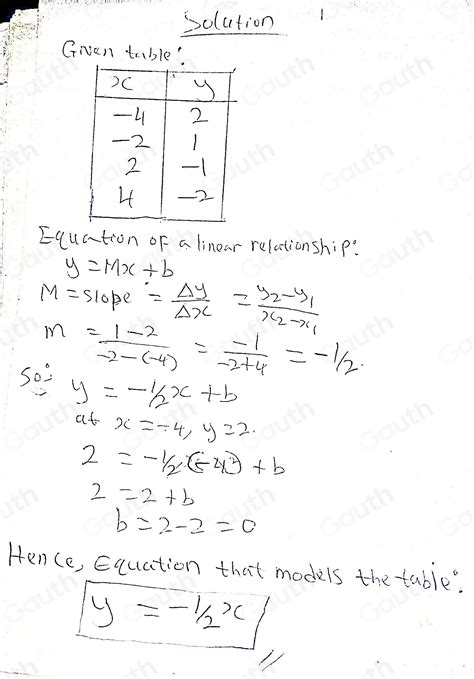 Solution 1
Given table:
x y
-4 2
-2 1
2 -1
4 -2
Equation of a linear relationship:
y = Mx + b
M = slope = Δy/Δx = y₂-y₁/x₂-x₁
m = 1-2/-2-(-4) = -1/-2+4 = -1/2.
So:
y = -1/2x + b
at x = -4, y = 2.
2 = -1/2(-4) + b
2 = 2 + b
b = 2-2 = 0
Hence, Equation that models the table:
y = -1/2x
Gauth